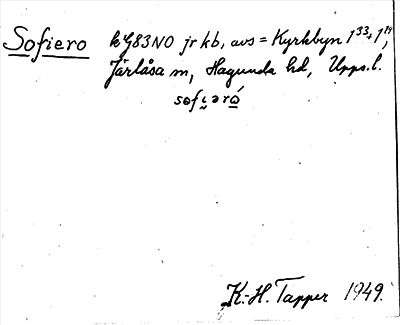 Sofiero k Y83NO jr kb, avs = Kyrkbyn 1³³+1¹⁴,
Järlåsa sn, Hagunda hd, Upps. l.
sofi̯əró
K.-H. Tapper 1949.